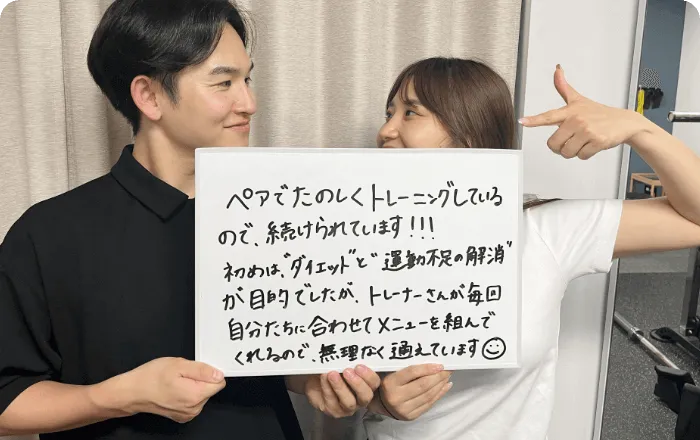 ペアでたのしくトレーニングしている
ので、続けられています!!!
初めは、"ダイエット"と"運動不足の解消"
が目的でしたが、トレーナーさんが毎回
自分たちに合わせてメニューを組んで
くれるので、無理なく通えています☺